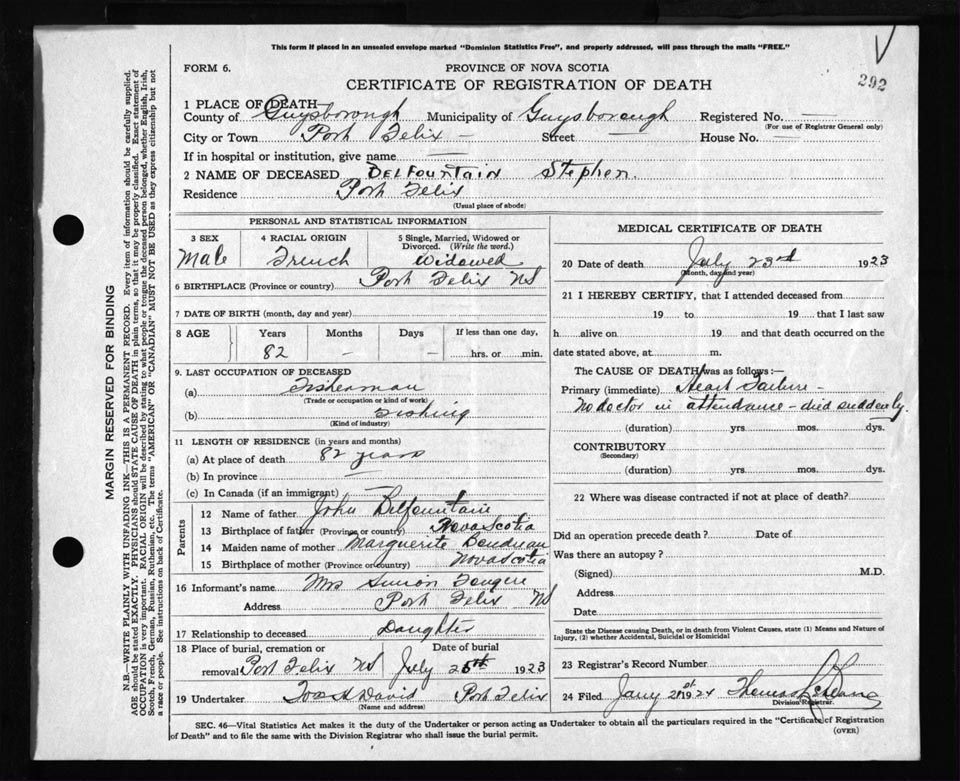 This form if placed in an unsealed envelope marked "Dominion Statistics Free", and properly addressed, will pass through the mails "FREE."
FORM 6.
PROVINCE OF NOVA SCOTIA
292
CERTIFICATE OF REGISTRATION OF DEATH
1 PLACE OF DEATH—
County of Guysborough Municipality of Guysborough Registered No. —
(For use of Registrar General only)
City or Town Port Felix — Street — House No. —
If in hospital or institution, give name —
2 NAME OF DECEASED DELFOUNTAIN Stephen.
Residence Port Felix
(Usual place of abode)
PERSONAL AND STATISTICAL INFORMATION
3 SEX 4 RACIAL ORIGIN 5 Single, Married, Widowed or Divorced. (Write the word.)
Male French Widowed
6 BIRTHPLACE (Province or country) Port Felix NS
7 DATE OF BIRTH (month, day and year)
8 AGE Years Months Days If less than one day,
82 — — hrs. or min.
9. LAST OCCUPATION OF DECEASED
(a) Fisherman
(Trade or occupation or kind of work)
(b) Fishing
(Kind of industry)
11 LENGTH OF RESIDENCE (in years and months)
(a) At place of death 82 years
(b) In province —
(c) In Canada (if an immigrant) —
Parents
12 Name of father John Delfountain
13 Birthplace of father (Province or country) Nova Scotia
14 Maiden name of mother Marguerite Boudreau
15 Birthplace of mother (Province or country) Nova Scotia
16 Informant's name Mrs Simon Fougere
Address Port Felix NS
17 Relationship to deceased Daughter
18 Place of burial, cremation or Date of burial
removal Port Felix NS July 25th 1923
19 Undertaker David Port Felix
(Name and address)
MEDICAL CERTIFICATE OF DEATH
20 Date of death July 23rd 1923
(Month, day and year)
21 I HEREBY CERTIFY, that I attended deceased from
19 to 19 that I last saw
h alive on 19 and that death occurred on the
date stated above, at m.
The CAUSE OF DEATH was as follows:—
Primary (immediate) Heart Failure —
No doctor in attendance — died suddenly.
(duration) yrs. mos. dys.
CONTRIBUTORY
(Secondary)
(duration) yrs. mos. dys.
22 Where was disease contracted if not at place of death?
Did an operation precede death? Date of
Was there an autopsy?
(Signed) M.D.
Address
Date
State the Disease causing Death, or in death from Violent Causes, state (1) Means and Nature of
Injury, (2) whether Accidental, Suicidal or Homicidal
23 Registrar's Record Number
24 Filed Jany 21st 1924 Thomas
Division Registrar.
SEC. 46—Vital Statistics Act makes it the duty of the Undertaker or person acting as Undertaker to obtain all the particulars required in the "Certificate of Registration
of Death" and to file the same with the Division Registrar who shall issue the burial permit.
(OVER)
MARGIN RESERVED FOR BINDING
N.B.—WRITE PLAINLY WITH UNFADING INK—THIS IS A PERMANENT RECORD. Every item of information should be carefully supplied.
AGE should be stated EXACTLY. PHYSICIANS should STATE CAUSE OF DEATH in plain terms, so that it may be properly classified. Exact statement of
OCCUPATION is very important. RACIAL ORIGIN will be described by stating to what people or tongue the deceased person belonged, whether English, Irish,
Scotch, French, German, Russian, Ruthenian, etc. The terms "AMERICAN" or "CANADIAN" MUST NOT BE USED as they express citizenship but not
a race or people. See instructions on back of Certificate.